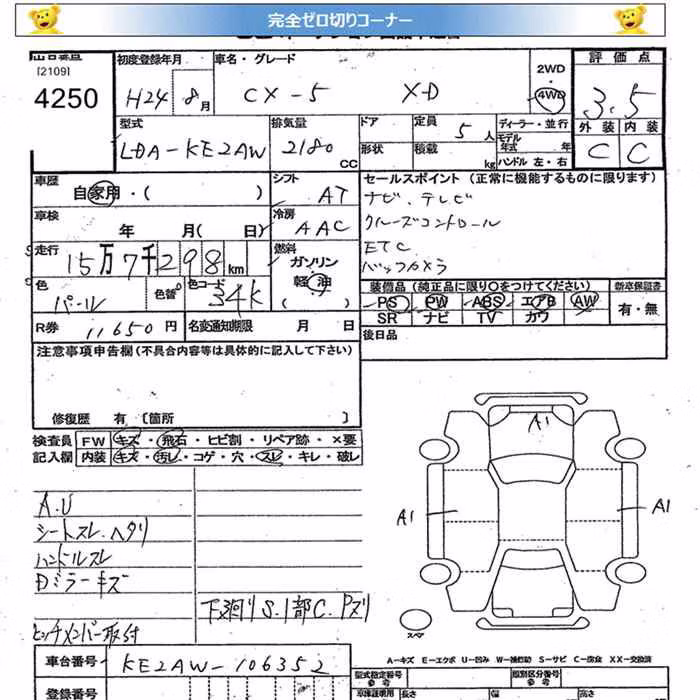 完全ゼロ切りコーナー
出品番号
[2109]
4250
初度登録年月
H24年 8月
車名・グレード
CX-5 XD
2WD
・
4WD
評価点
3.5
外装 内装
C C
型式
LDA-KE2AW
排気量
2180 CC
ドア
形状
定員 5人
積載 kg
ディーラー・並行
モデル年式 年
ハンドル 左・右
車歴
自家用・( )
シフト
AT
車検
年 月( 日)
冷房
AAC
走行
15万7千298 km
燃料
ガソリン
軽油
色
パール
色替
色コード
34K
R券 11650円
名変通知期限 月 日
セールスポイント (正常に機能するものに限ります)
ナビ、テレビ
クルーズコントロール
ETC
バックカメラ
装備品 (純正品に限り○をつけてください)
新車保証書
PS PW ABS エアB AW
SR ナビ TV カワ
有・無
後日品
注意事項申告欄(不具合内容等は具体的に記入して下さい)
修復歴 有 〔箇所 〕
検査員
記入欄
FW キズ・飛石・ヒビ割・リペア跡・×要
内装 キズ・汚レ・コゲ・穴・スレ・キレ・破レ
A.U
シートスレ、ヘタリ
ハンドルスレ
Dミラーキズ
下廻りS.1部C.Pズリ
ヒッチメンバー取付
A1
A1
A1
スペア
A-キズ E-エクボ U-凹み W-補修跡 S-サビ C-腐食 XX-交換済
車台番号 KE2AW-106352
登録番号
型式指定番号
参考
類別区分番号
参考
車庫証明用
長さ
幅
高さ